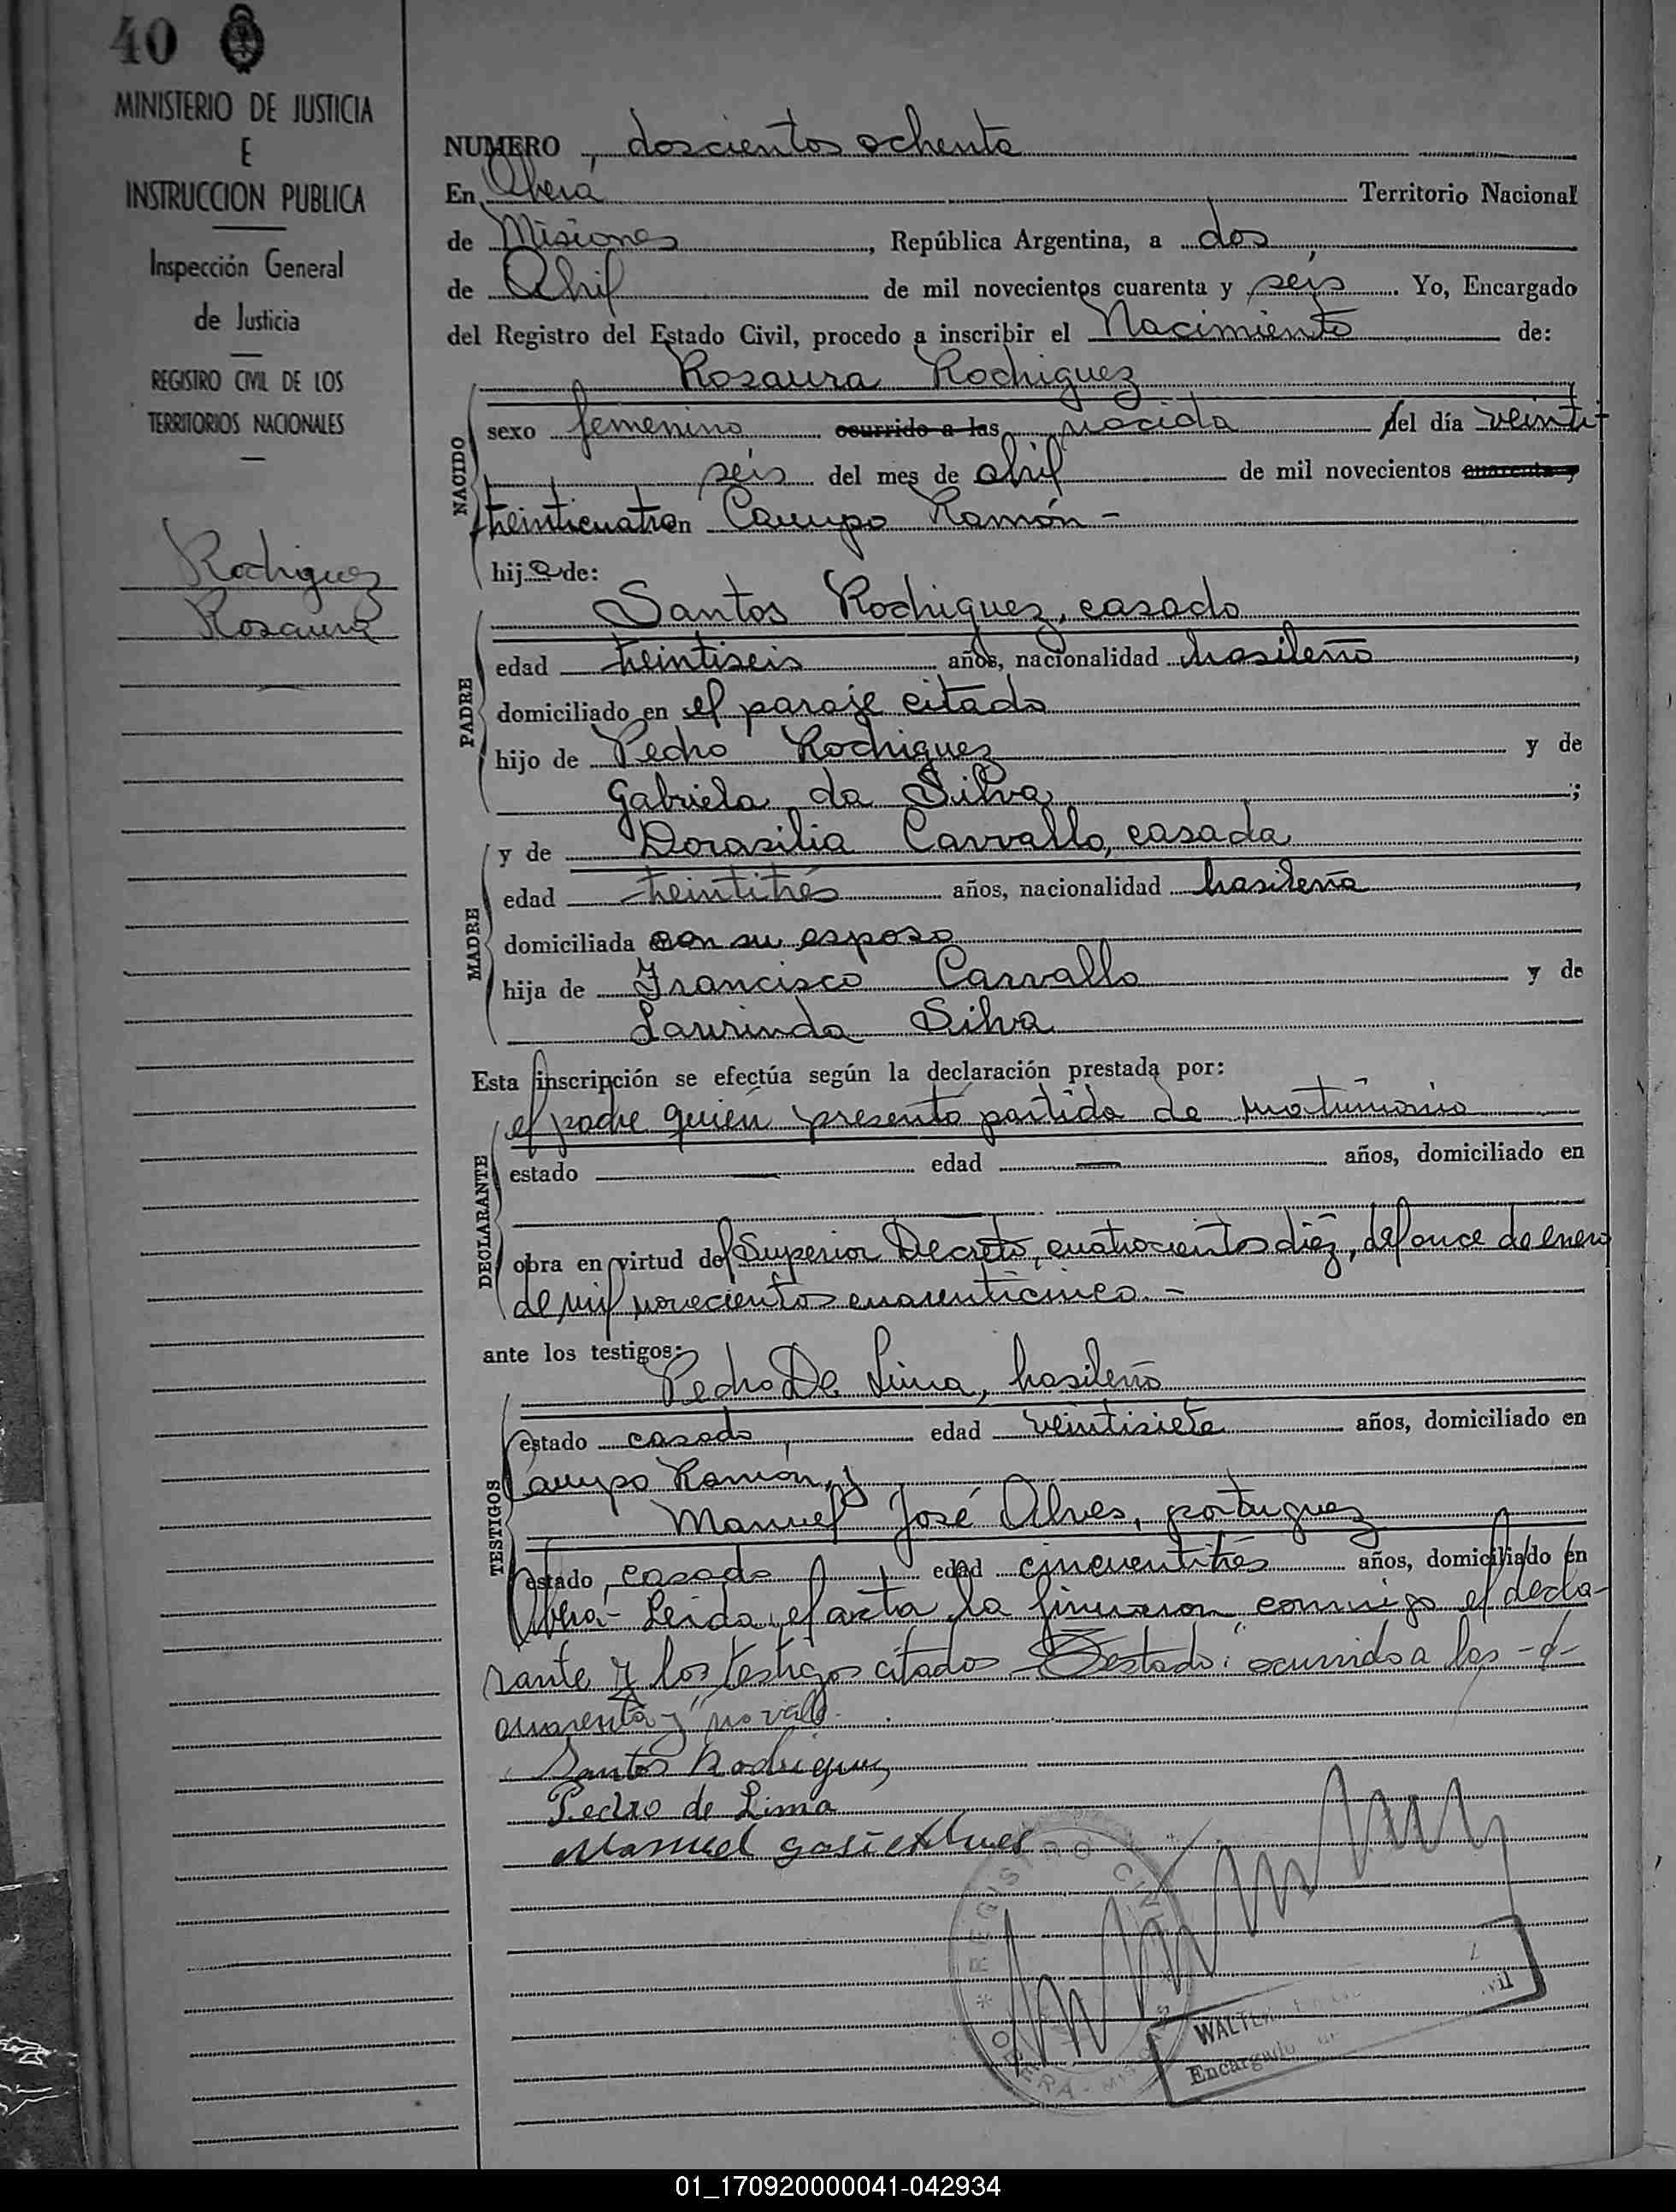 40
MINISTERIO DE JUSTICIA
E
INSTRUCCION PUBLICA
Inspección General
de Justicia
REGISTRO CIVIL DE LOS
TERRITORIOS NACIONALES
Rodriguez
Rosaura
NUMERO, doscientos ochenta
En Oberá Territorio Nacional
de Misiones, República Argentina, a dos
de Abril de mil novecientos cuarenta y seis. Yo, Encargado
del Registro del Estado Civil, procedo a inscribir el Nacimiento de:
Rosaura Rodriguez
NACIDO
sexo femenino ocurrido a las nacida del día veinti
seis del mes de abril de mil novecientos cuarenta y
treinticuatro en Campo Ramón -
hija de:
Santos Rodriguez, casado
PADRE
edad treintiseis años, nacionalidad brasileño,
domiciliado en el paraje citado
hijo de Pedro Rodriguez y de
Gabriela da Silva;
y de Dorasilia Carvallo, casada
MADRE
edad treintitrés años, nacionalidad brasileña,
domiciliada con su esposo
hija de Francisco Carvallo y de
Laurinda Silva
Esta inscripción se efectúa según la declaración prestada por:
el padre quién presentó partida de matrimonio
DECLARANTE
estado — edad — años, domiciliado en
obra en virtud del Superior Decreto, cuatrocientos diéz, del once de enero
de mil novecientos cuarenticinco. -
ante los testigos:
Pedro De Lima, brasileño
TESTIGOS
estado casado, edad veintisiete años, domiciliado en
Campo Ramón, y
Manuel José Alves, portuguez
estado, casado edad cincuentitrés años, domiciliado en
Oberá - Leida el acta la firmaron conmigo el decla-
rante y los testigos citados - Testado: "ocurrido a las -d-
cuarenta y" no vale.
Santos Rodriguez
Pedro de Lima
Manuel José Alves
REGISTRO CIVIL
OBERA - MISIONES
WALTER
Encargado
01_170920000041-042934